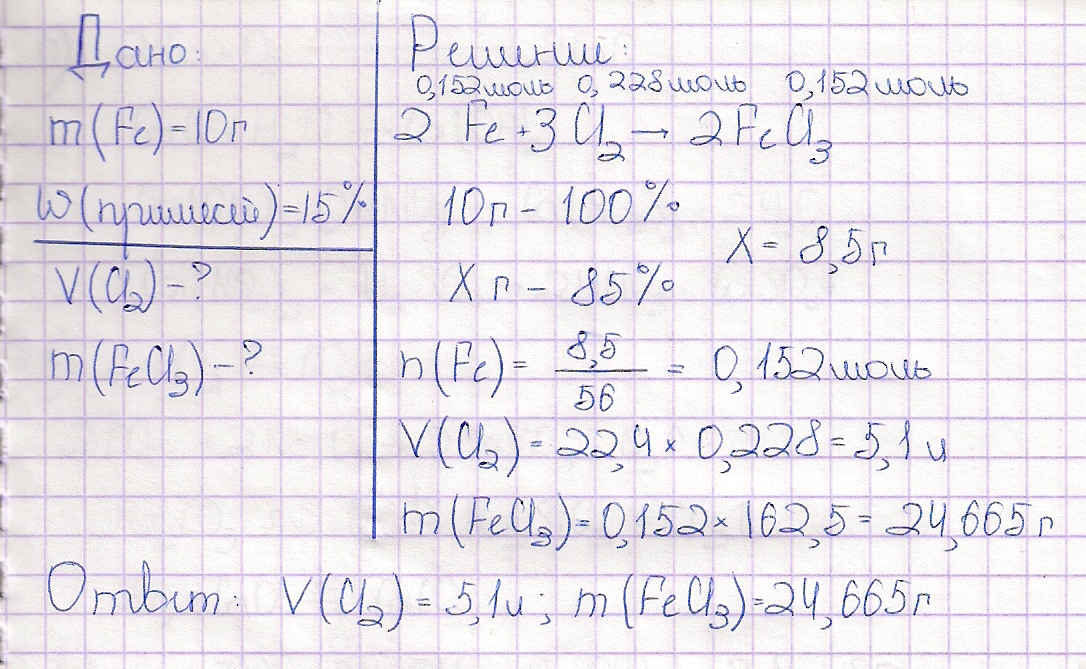 Дано:
m(Fe)=10г
W(примесей)=15%
V(Cl₂)-?
m(FeCl₃)-?
Решение:
0,152моль 0,228моль 0,152моль
2 Fe+3Cl₂→ 2FeCl₃
10г - 100%
X= 8,5г
X г - 85%
n(Fe)= 8,5/56 = 0,152моль
V(Cl₂)=22,4×0,228=5,1л
m(FeCl₃)=0,152×162,5=24,665г
Ответ: V(Cl₂)=5,1л; m(FeCl₃)=24,665г